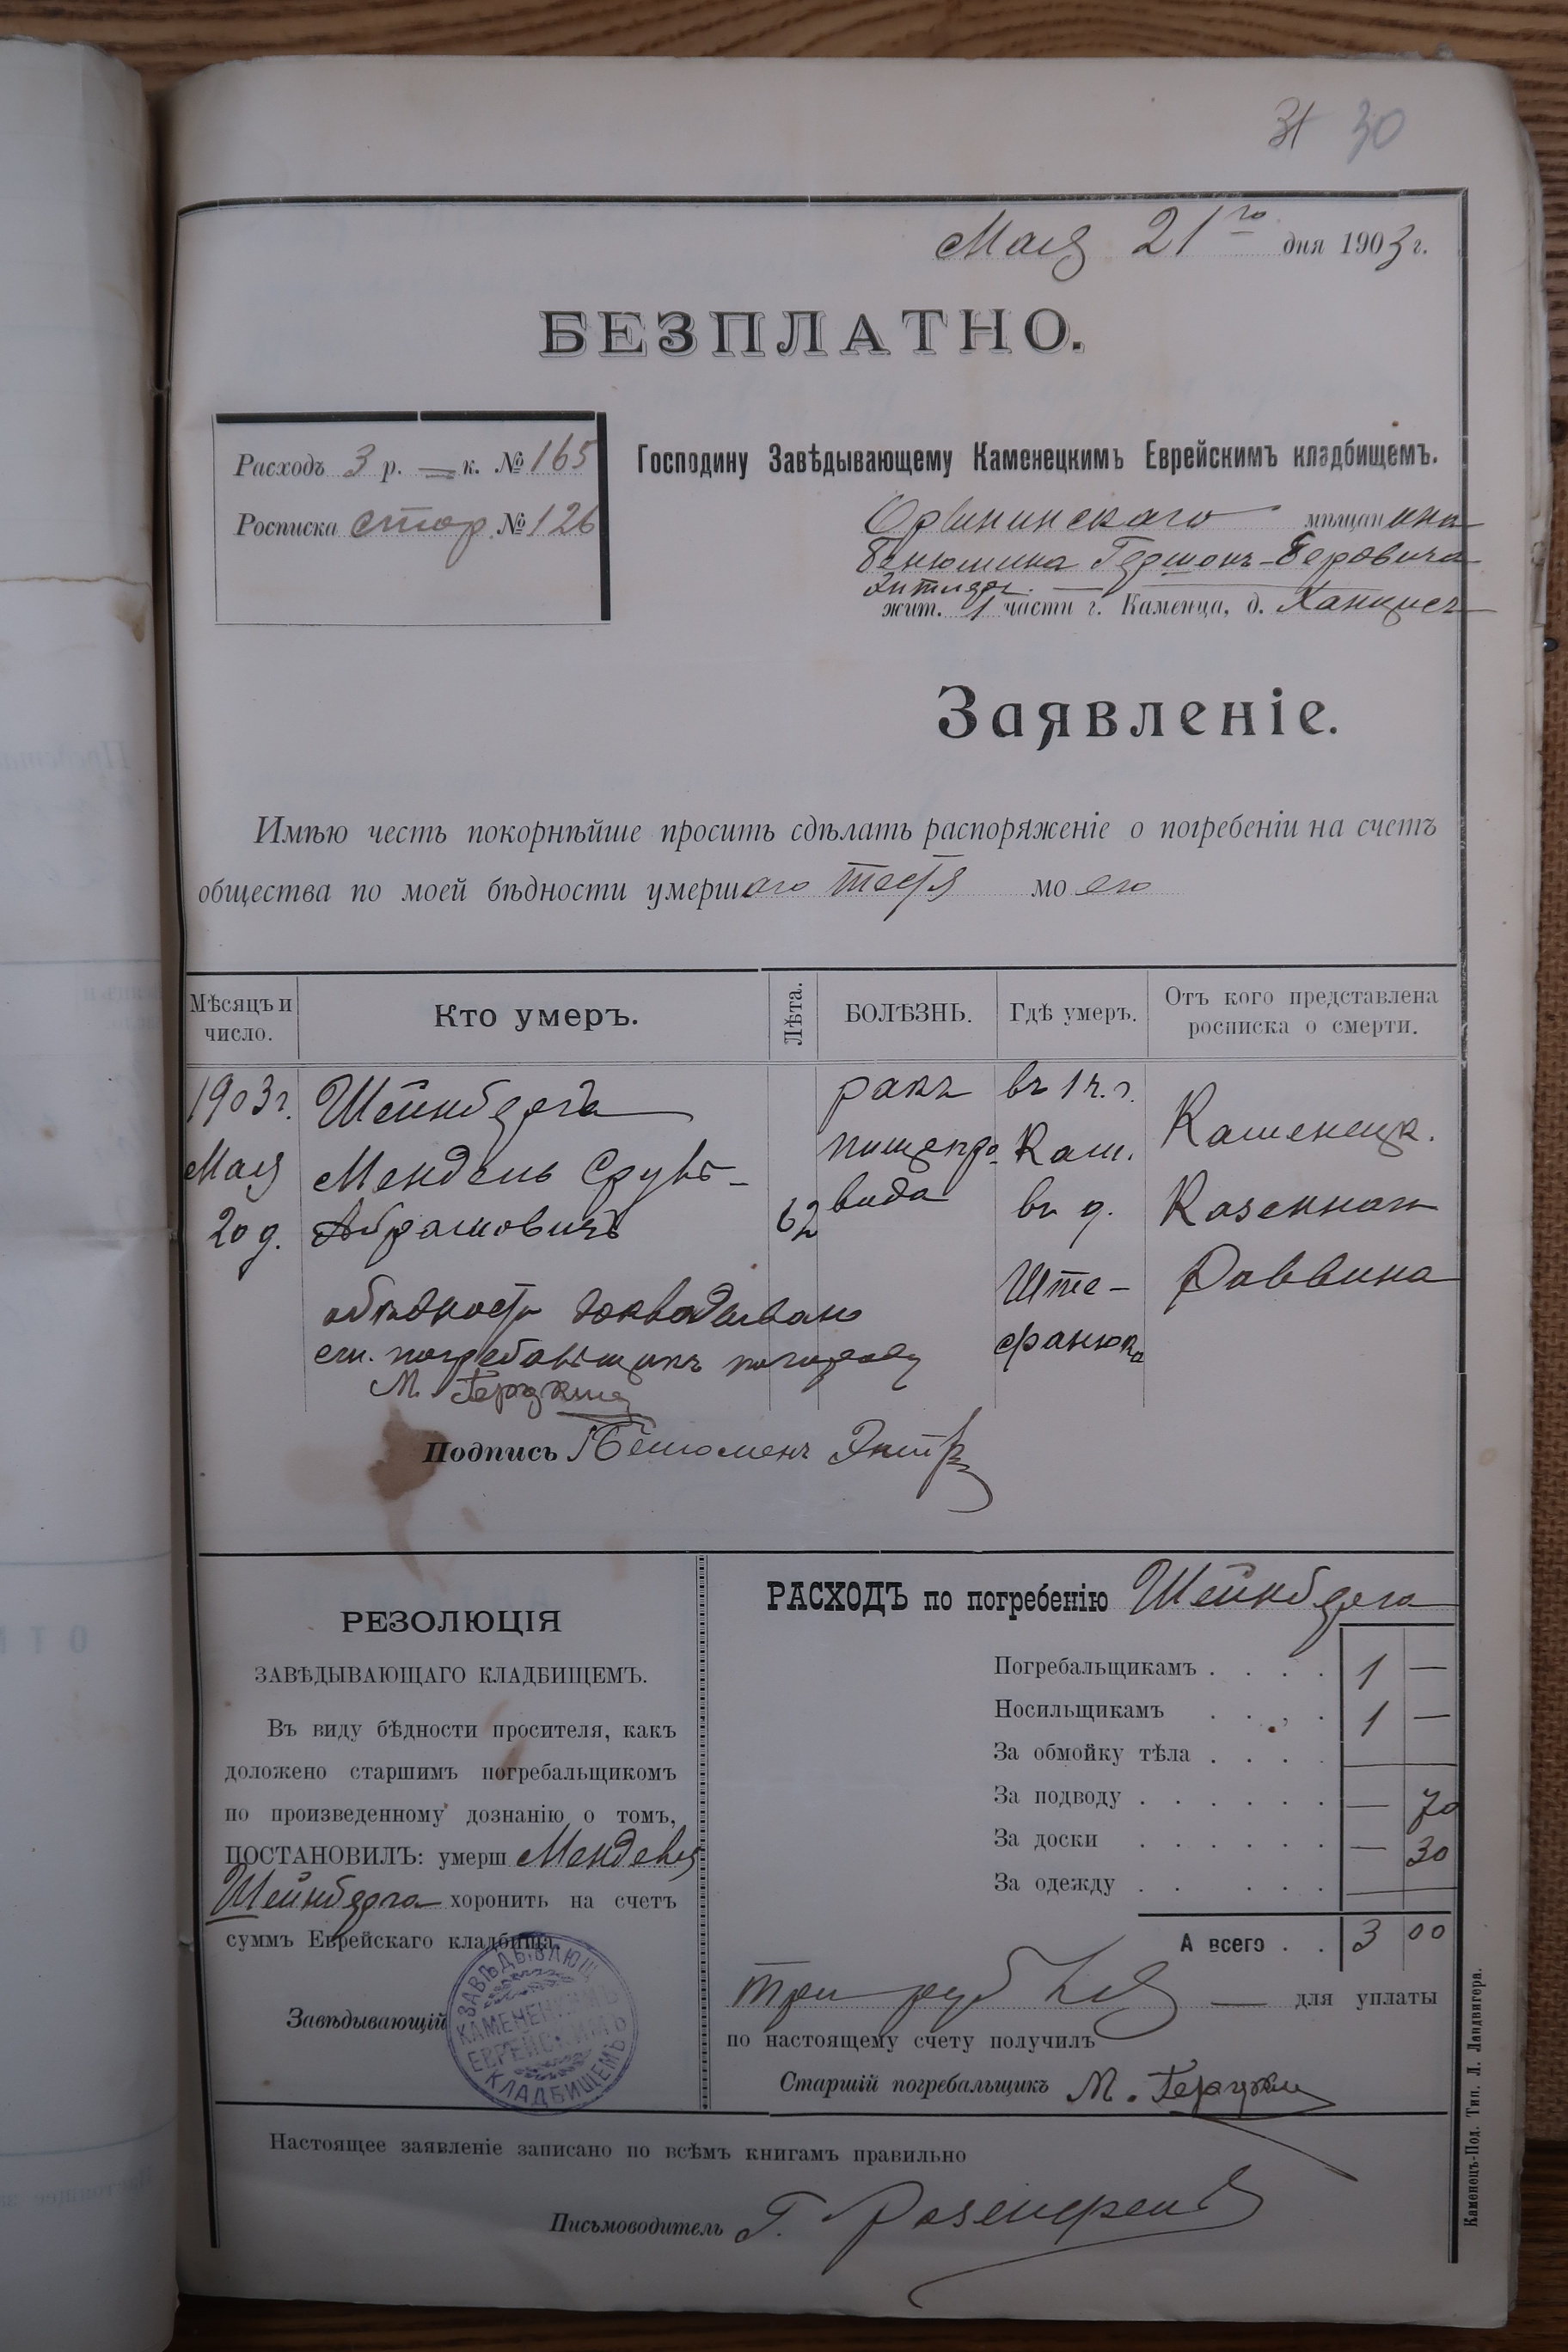 31 30
Мая 21го дня 1903 г.
БЕЗПЛАТНО.
Расходъ 3 р. — к. № 165
Росписка стор. № 126
Господину Завѣдывающему Каменецкимъ Еврейскимъ кладбищемъ.
Орининскаго мѣщанина
Бенюмина Гершонъ-Беровича
жит. 1 части г. Каменца, д.
Заявленіе.
Имѣю честь покорнѣйше просить сдѣлать распоряженіе о погребеніи на счетъ
общества по моей бѣдности умершаго тестя моего
Мѣсяцъ и число.
Кто умеръ.
Лѣта.
БОЛѢЗНЬ.
Гдѣ умеръ.
Отъ кого представлена росписка о смерти.
1903 г. Мая 20 д.
Шейнберга
Мендель Сруль-
Абрамовичъ
62
ракъ
пищепро-
вода
въ 1 ч. г.
Кам.
въ д.
Ште-
фанюка
Каменецк.
Казеннаго
Раввина
о бѣдности
ст. погребальщикъ
М.
Подпись Бенюменъ
РЕЗОЛЮЦІЯ
ЗАВѢДЫВАЮЩАГО КЛАДБИЩЕМЪ.
Въ виду бѣдности просителя, какъ
доложено старшимъ погребальщикомъ
по произведенному дознанію о томъ,
ПОСТАНОВИЛЪ: умерш Менделя
Шейнберга хоронить на счетъ
суммъ Еврейскаго кладбища.
Завѣдывающій
ЗАВѢДЫВАЮЩ КАМЕНЕЦКИМЪ ЕВРЕЙСКИМЪ КЛАДБИЩЕМЪ
РАСХОДЪ по погребенію Шейнберга
Погребальщикамъ . . . . 1 —
Носильщикамъ . . , . 1 —
За обмойку тѣла . . . .
За подводу . . . . . . — 70
За доски . . . . . . — 30
За одежду . . . . .
А всего . . 3 00
три руб — для уплаты
по настоящему счету получилъ
Старшій погребальщикъ М.
Настоящее заявленіе записано по всѣмъ книгамъ правильно
Письмоводитель Г.
Каменецъ-Под. Тип. Л. Ландвигера.